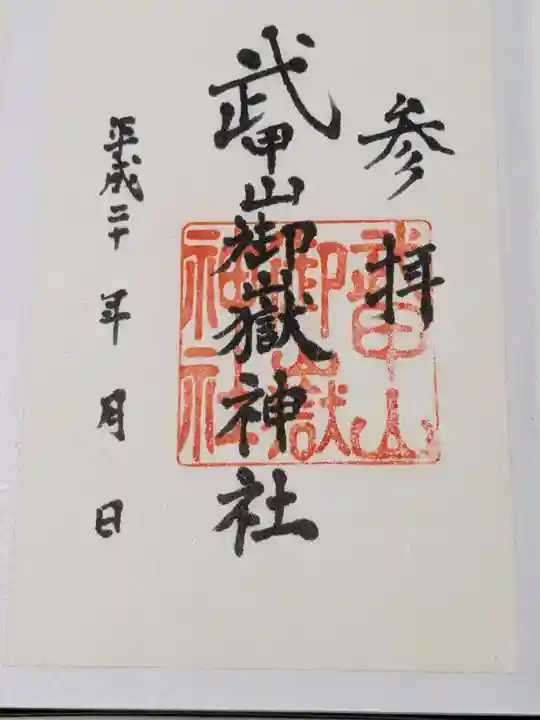 参拝
武甲山御嶽神社
武甲山
御嶽
神社
平成二十年月日